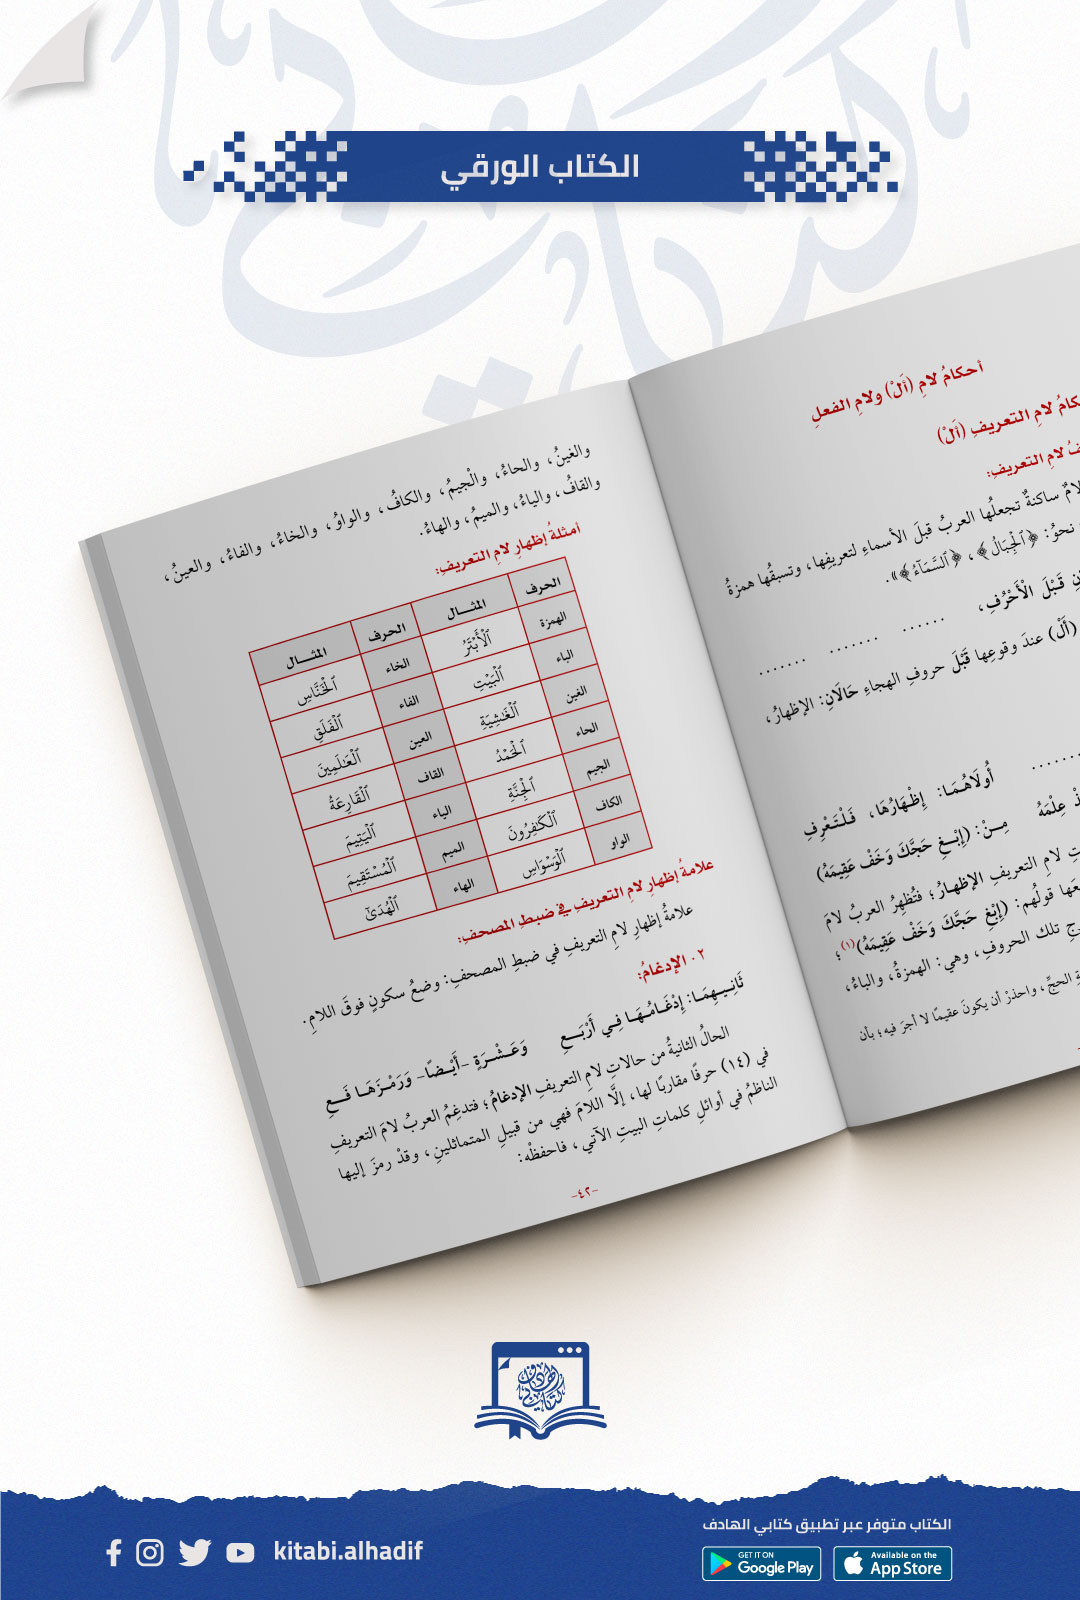 الكتاب الورقي
أحكامُ لامِ (أَلْ) ولامِ الفعلِ
لامِ التعريفِ (أَلْ)
لامِ التعريفِ:
لامٌ ساكنةٌ تجعلُها العربُ قبلَ الأسماءِ لتعريفِها، وتسبقُها همزةُ
نحوُ: ﴿ٱلْجِبَالُ﴾، ﴿ٱلسَّمَآءُ﴾».
قَبْلَ الْأَحْرُفِ، ...... ....... .......
(أَلْ) عندَ وقوعِها قَبْلَ حروفِ الهجاءِ حَالَانِ: الإظهارُ،
أُولَاهُـمَـا: إِظْهَارُهَا، فَـلْـتَـعْرِفِ ........
عِلْمَهُ مِـنْ: (إِبْـغِ حَجَّكَ وَخَفْ عَقِيمَهُ)
لامِ التعريفِ الإظهارُ؛ فتُظهِرُ العربُ لامَ
قولُهم: (إِبْغِ حَجَّكَ وَخَفْ عَقِيمَهُ)(١)؛
تلك الحروفِ، وهي: الهمزةُ، والباءُ،
الحجِّ، واحذرْ أن يكونَ عقيمًا لا أجرَ فيه؛ بأن
والغينُ، والحاءُ، والْجيمُ، والكافُ، والواوُ، والخاءُ، والفاءُ، والعينُ،
والقافُ، والياءُ، والميمُ، والهاءُ.
أمثلةُ إظهارِ لامِ التعريفِ:
الحرف المثـــال الحرف المثـــال
الهمزة ٱلْأَبْتَرُ الخاء ٱلْخَنَّاسِ
الباء ٱلْبَيْتِ الفاء ٱلْفَلَقِ
الغين ٱلْغَٰشِيَةِ العين ٱلْعَٰلَمِينَ
الحاء ٱلْحَمْدُ القاف ٱلْقَارِعَةُ
الجيم ٱلْجِنَّةِ الياء ٱلْيَتِيمَ
الكاف ٱلْكَٰفِرُونَ الميم ٱلْمُسْتَقِيمَ
الواو ٱلْوَسْوَاسِ الهاء ٱلْهُدَىٰٓ
علامةُ إظهارِ لامِ التعريفِ في ضبطِ المصحفِ:
علامةُ إظهارِ لامِ التعريفِ في ضبطِ المصحفِ: وضعُ سكونٍ فوقَ اللامِ.
٢. الإدغامُ:
ثَانِـيـهِمَـا: إِدْغَـامُـهَـا فِـي أَرْبَـــعِ وَعَـشْــرَةٍ -أَيْـضًـا- وَرَمْـزَهَـا فَـــعِ
الحالُ الثانيةُ من حالاتِ لامِ التعريفِ الإدغامُ؛ فتدغِمُ العربُ لامَ التعريفِ
في (١٤) حرفًا مقاربًا لها، إلَّا اللامَ فهي من قبيلِ المتماثلينِ، وقدْ رمزَ إليها
الناظمُ في أوائلِ كلماتِ البيتِ الآتي، فاحفظْه:
-٤٢-
الكتاب متوفر عبر تطبيق كتابي الهادف
kitabi.alhadif
GET IT ON
Google Play
Available on the
App Store